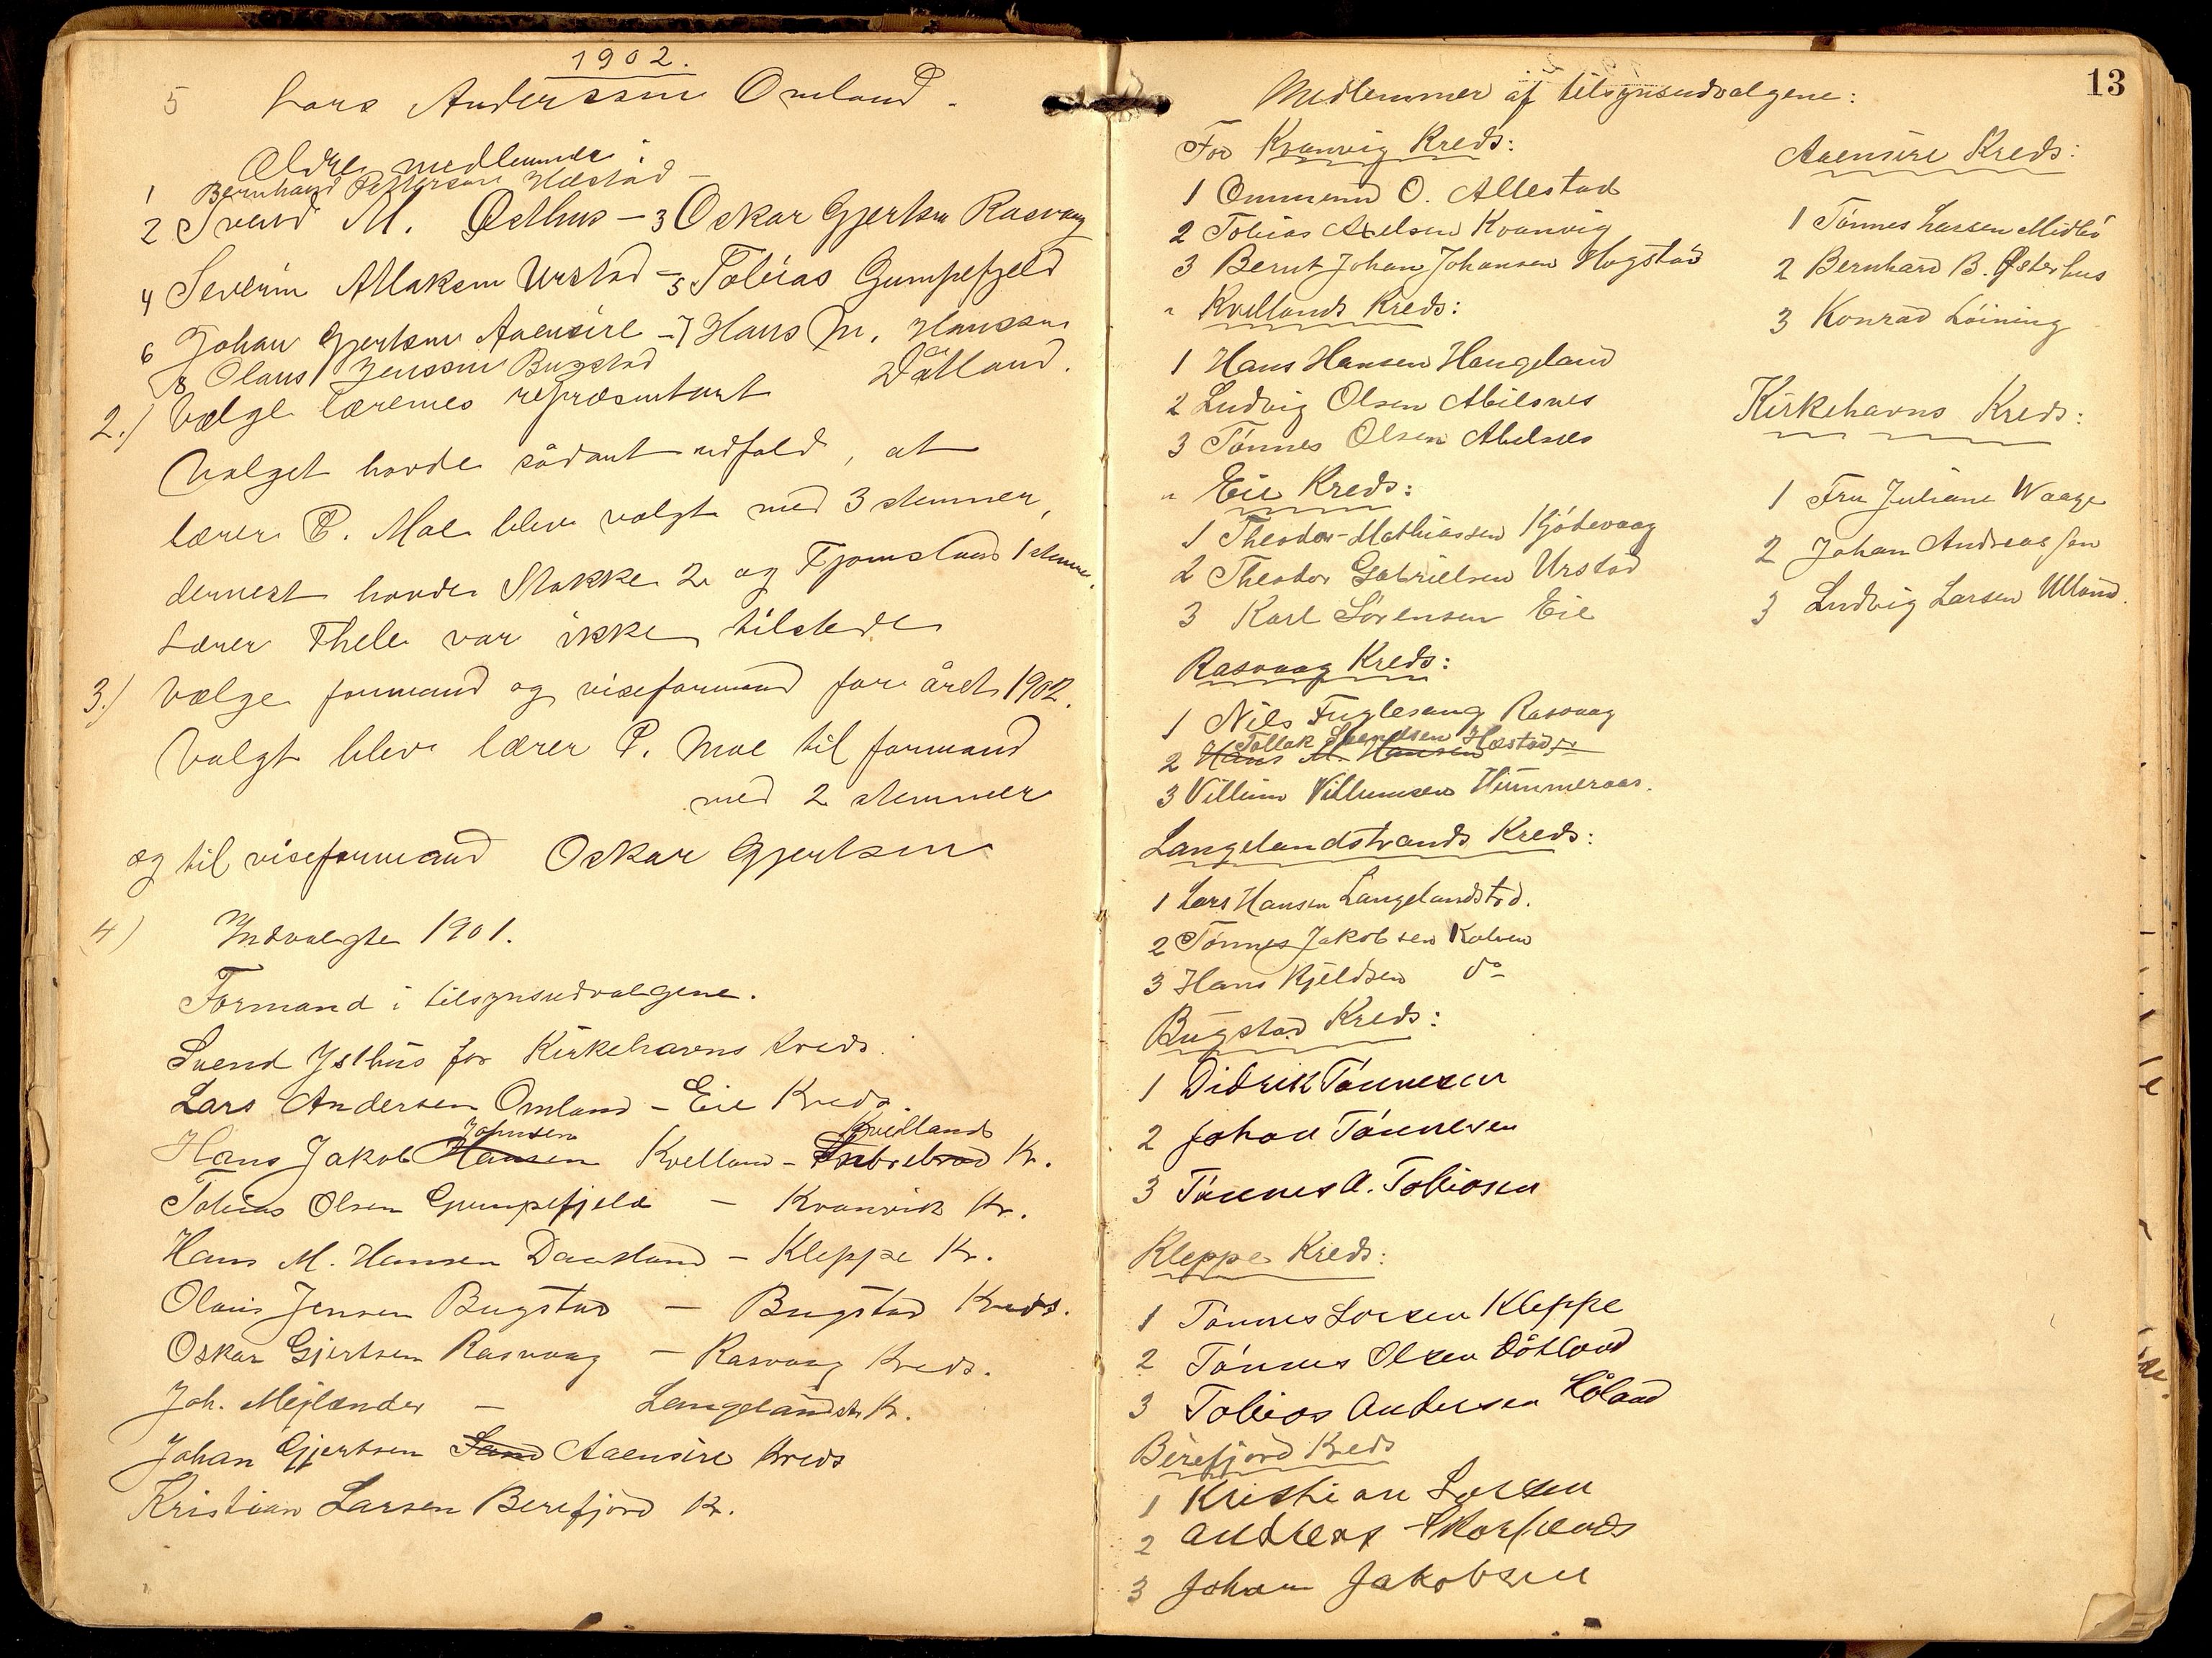 1902.
5 Lars Anderssen Omland.
Ældre medlemmer:
1 Bernhard Pettersen Hæstad –
2 Svend M. Østhus – 3 Oskar Gjertsen Rasvaag
4 Severin Atlaksen Urstad – 5 Tobias Gumpefjeld
6 Johan Gjertsen Aaensire – 7 Hans M. Hanssen
8 Olaus Jenssen Bugstad Dåtland.
2.) Vælge lærernes repræsentant
Valget havde sådant udfald, at
lærer P. Moe blev valgt med 3 stemmer,
dernest havde Stakke 2 og Fjomsland 1 stemme.
Lærer Thele var ikke tilstede
3.) Vælge formand og viseformand for året 1902.
Valgt blev lærer P. Moe til formand
med 2 stemmer
og til viseformand Oskar Gjertsen
4) Indvalgte 1901.
Formand i tilsynsudvalgene.
Svend Ysthus for Kirkehavns Kreds.
Lars Andersen Omland – Eie Kreds.
Johnsen Kvellands
Hans Jakob Hansen Kvelland – Kr.
Tobias Olsen Gumpefjeld – Kvanvik Kr.
Hans M. Hansen Daatland – Kleppe Kr.
Olaus Jensen Bugstad – Bugstad Kreds.
Oskar Gjertsen Rasvaag – Rasvaag Kreds.
Joh. Mejlænder – Langelandstr. Kr.
Johan Gjertsen Sand Aaensire Kreds
Kristian Larsen Berefjord Kr.
13
Medlemmer af tilsynsudvalgene:
For Kvanvig Kreds:
1 Ommund O. Allestad
2 Tobias Axelsen Kvanvig
3 Bernt Johan Johansen Hogstad
" Kvellands Kreds:
1 Hans Hansen Haugeland
2 Ludvig Olsen Abelsnes
3 Tönnes Olsen Abelnes
" Eie Kreds:
1 Theodor Mathiassen Kjödevaag
2 Theodor Gabrielsen Urstad
3 Karl Sörensen Eie
Rasvaag Kreds:
1 Nils Fuglesang Rasvaag
Tollak Svendsen Hæstad
2 Hans M. Hansen
3 Villum Villumsen Hummeraas.
Langelandstrands Kreds:
1 Lars Hansen Langelandstrd.
2 Tönnes Jakobsen Kalven
3 Hans Kjeldsen do
Bugstad Kreds:
1 Didrik Tönnesen
2 Johan Tönnesen
3 Tönnes A. Tobiasen
Kleppe Kreds:
1 Tönnes Larsen Kleppe
2 Tönnes Olsen Dåtland
3 Tobias Andersen Låland
Berefjord Kreds
1 Kristian Larsen
2 Andreas
3 Johan Jakobsen
Aaensire Kreds:
1 Tönnes Larsen Midbö
2 Bernhard B. Østerhus
3 Konrad Löining
Kirkehavns Kreds:
1 Fru Juliane Waage
2 Johan Andreassen
3 Ludvig Larsen Ulland.